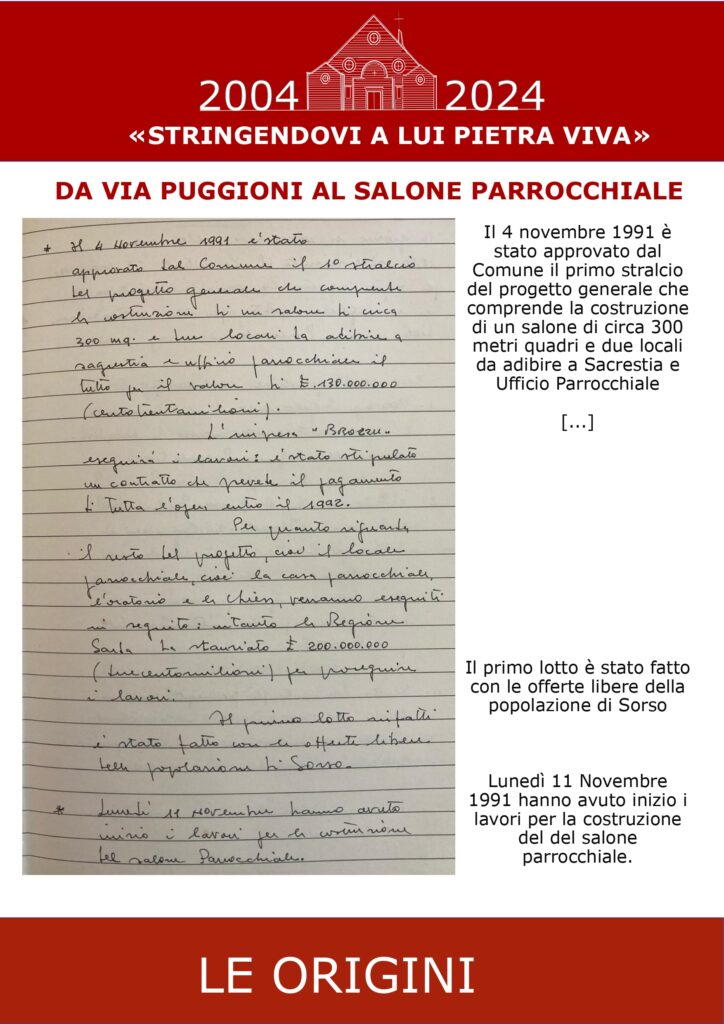 2004 2024
«STRINGENDOVI A LUI PIETRA VIVA»
DA VIA PUGGIONI AL SALONE PARROCCHIALE
* Il 4 Novembre 1991 è stato
approvato dal Comune il 1° stralcio
del progetto generale che comprende
la costruzione di un salone di circa
300 mq. e due locali da adibire a
sagrestia e ufficio parrocchiale il
tutto per il valore di £. 130.000.000
(centotrentamilioni).
L'impresa "BROZZU"
eseguirà i lavori: è stato stipulato
un contratto che prevede il pagamento
di tutta l'opera entro il 1992.
Per quanto riguarda
il resto del progetto, cioè il locale
parrocchiale, cioè la casa parrocchiale,
l'oratorio e la Chiesa, verranno eseguiti
in seguito: intanto la Regione
Sarda ha stanziato £ 200.000.000
(duecentomilioni) per proseguire
i lavori.
Il primo lotto infatti
è stato fatto con le offerte libere
della popolazione di Sorso.
* Lunedì 11 Novembre hanno avuto
inizio i lavori per la costruzione
del salone Parrocchiale.
Il 4 novembre 1991 è
stato approvato dal
Comune il primo stralcio
del progetto generale che
comprende la costruzione
di un salone di circa 300
metri quadri e due locali
da adibire a Sacrestia e
Ufficio Parrocchiale
[...]
Il primo lotto è stato fatto
con le offerte libere della
popolazione di Sorso
Lunedì 11 Novembre
1991 hanno avuto inizio i
lavori per la costruzione
del del salone
parrocchiale.
LE ORIGINI